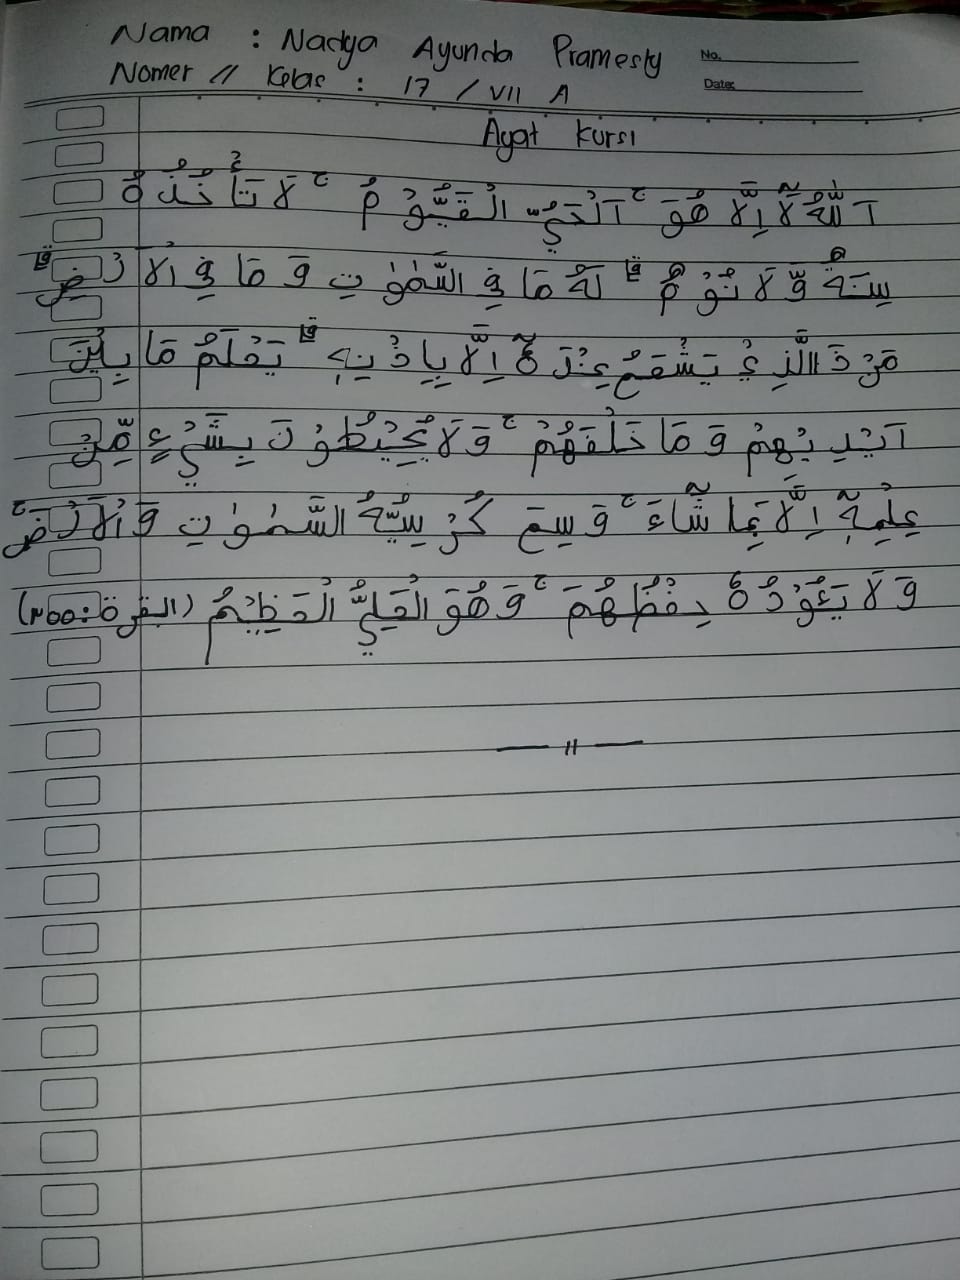 Nama : Nadya Ayunda Pramesty
No.
Nomer // Kelas : 17 / VII A
Date:
Ayat Kursi
اَللّٰهُ لَآ اِلٰهَ اِلَّا هُوَ ۚ اَلْحَيُّ الْقَيُّوْمُ ۚ لَا تَأْخُذُهٗ
سِنَةٌ وَّلَا نَوْمٌ ۗ لَهٗ مَا فِى السَّمٰوٰتِ وَمَا فِى الْاَرْضِ ۗ
مَنْ ذَا الَّذِيْ يَشْفَعُ عِنْدَهٗٓ اِلَّا بِاِذْنِهٖ ۗ يَعْلَمُ مَا بَيْنَ
اَيْدِيْهِمْ وَمَا خَلْفَهُمْ ۚ وَلَا يُحِيْطُوْنَ بِشَيْءٍ مِّنْ
عِلْمِهٖٓ اِلَّا بِمَا شَاۤءَ ۚ وَسِعَ كُرْسِيُّهُ السَّمٰوٰتِ وَالْاَرْضَ ۚ
وَلَا يَـُٔوْدُهٗ حِفْظُهُمَا ۚ وَهُوَ الْعَلِيُّ الْعَظِيْمُ (البقرة : ٢٥٥)